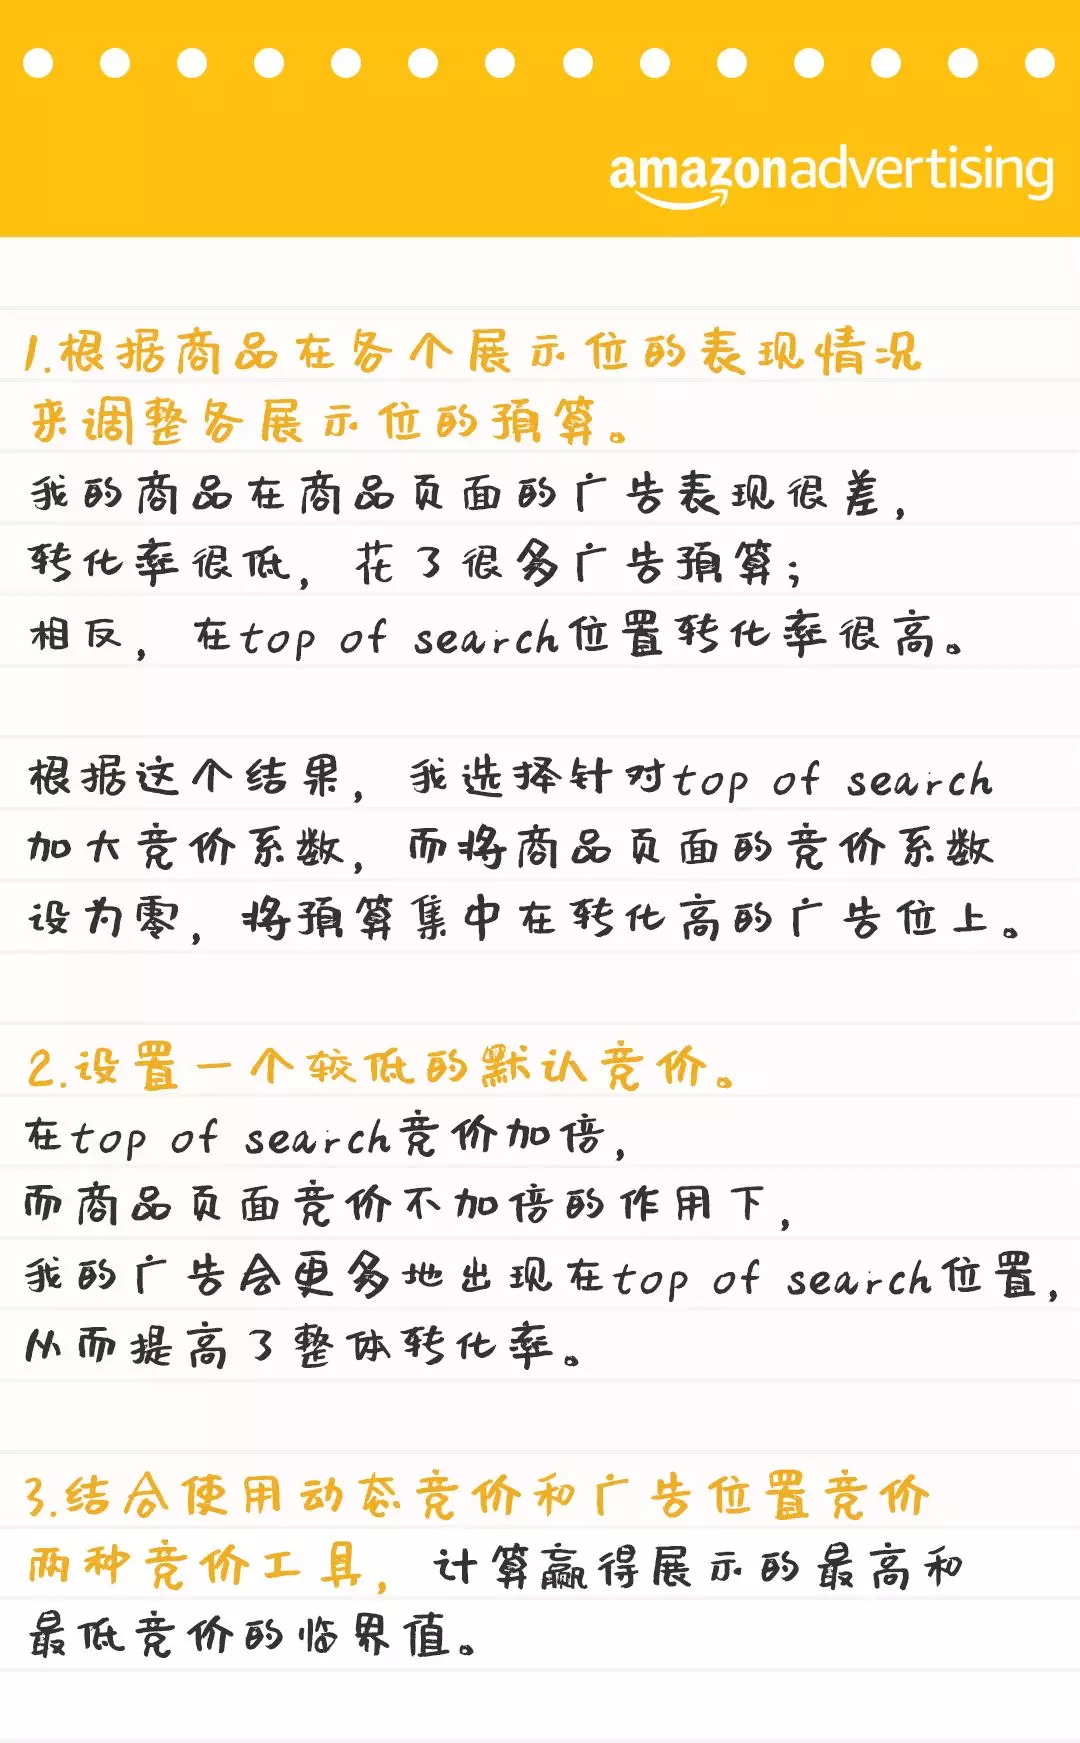 amazonadvertising
1.根据商品在各个展示位的表现情况
来调整各展示位的预算。
我的商品在商品页面的广告表现很差，
转化率很低，花了很多广告预算；
相反，在top of search位置转化率很高。
根据这个结果，我选择针对top of search
加大竞价系数，而将商品页面的竞价系数
设为零，将预算集中在转化高的广告位上。
2.设置一个较低的默认竞价。
在top of search竞价加倍，
而商品页面竞价不加倍的作用下，
我的广告会更多地出现在top of search位置，
从而提高了整体转化率。
3.结合使用动态竞价和广告位置竞价
两种竞价工具，计算赢得展示的最高和
最低竞价的临界值。